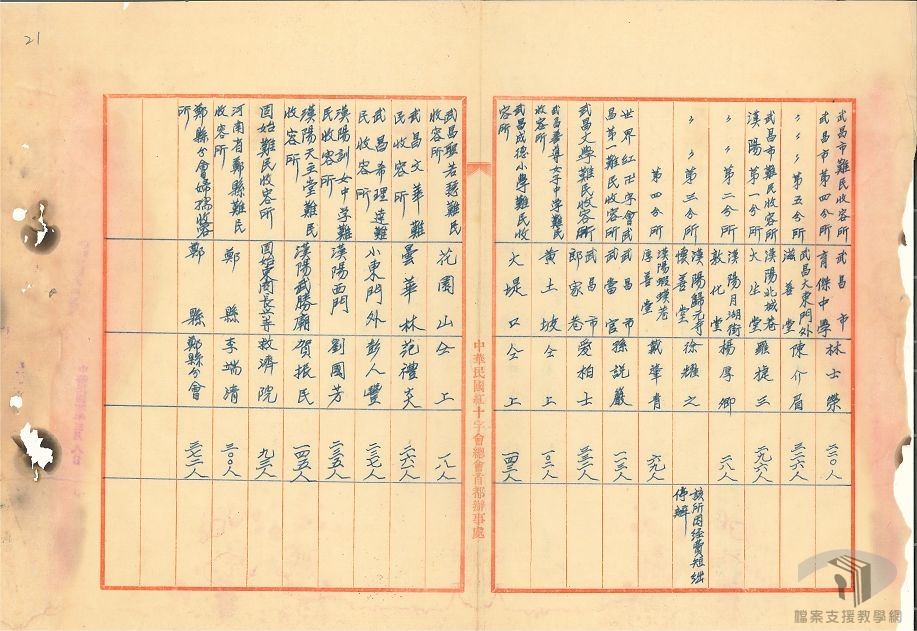 21
武昌市難民收容所
武昌市第四分所
武昌市
育傑中學
林士榮
三二〇人
〻〻第五分所
武昌大東門外
滋善堂
陳介眉
三二六人
武昌市難民收容所
漢陽第一分所
漢陽北城巷
大生堂
羅捷三
二九六人
〻〻第二分所
漢陽月湖街
敦化堂
楊厚卿
二八人
〻〻第三分所
漢陽歸元寺
懷善堂
徐耀之
該所因經費短絀
停辦
第四分所
漢陽瑕瑛巷
厚善堂
戴肇青
六九人
世界紅卍字會武
昌第一難民收容所
武昌市
武當宮
孫説巖
一一三人
武昌大學難民收容所
武昌市
郎家巷
愛柏士
三三二人
武昌善導女子中學難民
收容所
黃土坡
仝上
一〇二人
武昌成德小學難民收
容所
大堤口
仝上
一四三人
中華民國紅十字會總會首都辦事處
武昌聖若瑟難民
收容所
花園山
仝上
一八人
武昌文華難
民收容所
曇華林
范禮文
二六六人
武昌希理達難
民收容所
小東門外
彭人豐
二三七人
漢陽訓女中學難
民收容所
漢陽西門
劉國芳
二三五人
漢陽天主堂難民
收容所
漢陽武勝廟
賀振民
一四五人
固始難民收容所
固始東街長立寺
救濟院
九三人
河南省鄭縣難民
收容所
鄭縣
李瑞清
三〇〇人
鄭縣分會婦孺收容
所
鄭縣
鄭縣分會
三七二人
檔案支援教學網